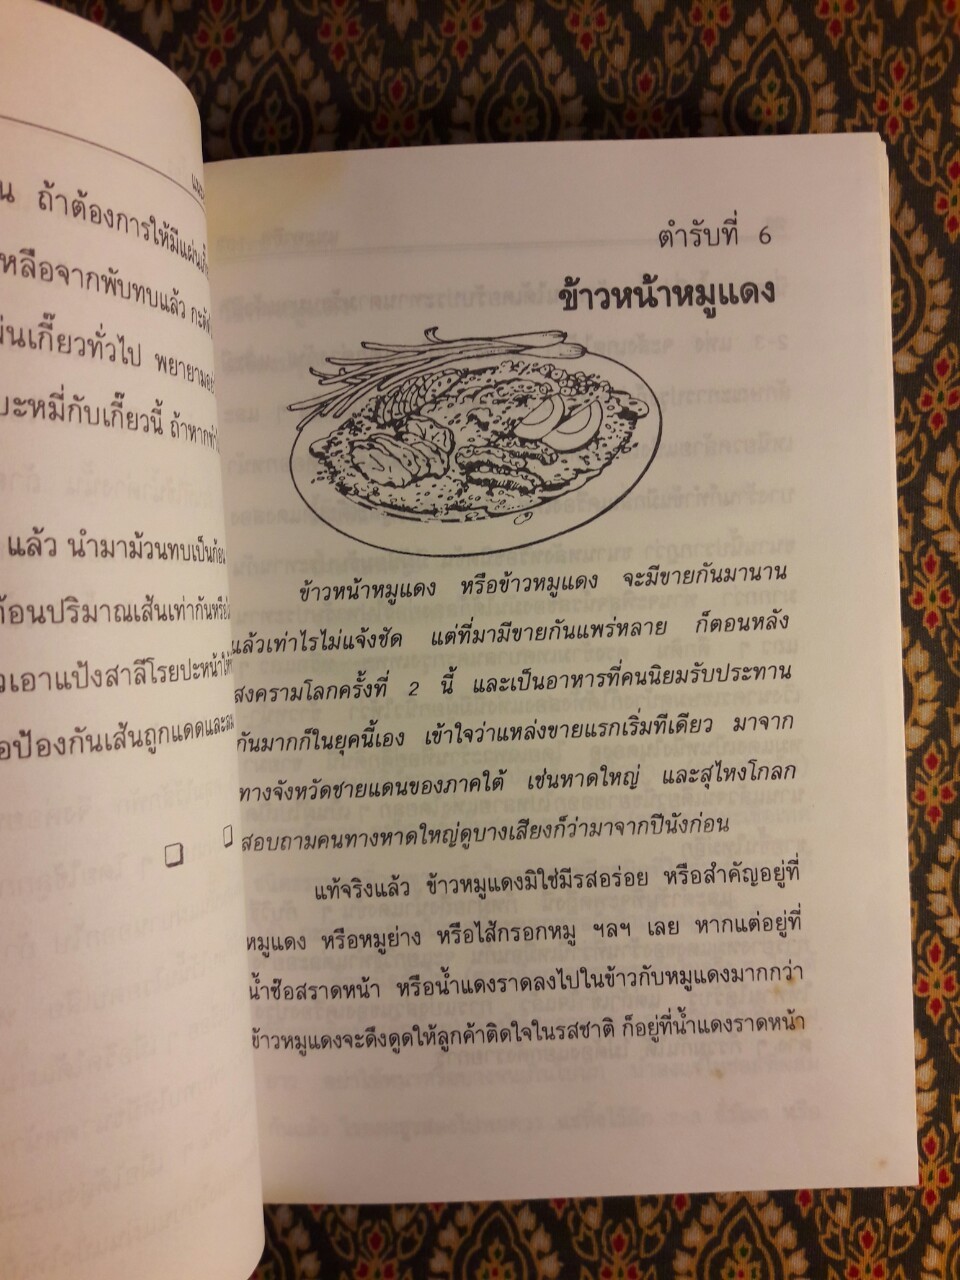 น ถ้าต้องการให้มีแผ่น
หลือจากพับทบแล้ว
ผ่นเกี๊ยวทั่วไป พยายาม
บะหมี่กับเกี๊ยวนี้ ถ้าหาก
แล้ว นำมาม้วนทบเป็นก้อน
ก้อนปริมาณเส้นเท่ากัน
วเอาแป้งสาลีโรยปะหน้า
อป้องกันเส้นถูกแดดและลม
ตำรับที่ 6
ข้าวหน้าหมูแดง
ข้าวหน้าหมูแดง หรือข้าวหมูแดง จะมีขายกันมานาน
แล้วเท่าไรไม่แจ้งชัด แต่ที่มามีขายกันแพร่หลาย ก็ตอนหลัง
สงครามโลกครั้งที่ 2 นี้ และเป็นอาหารที่คนนิยมรับประทาน
กันมากก็ในยุคนี้เอง เข้าใจว่าแหล่งขายแรกเริ่มทีเดียว มาจาก
ทางจังหวัดชายแดนของภาคใต้ เช่นหาดใหญ่ และสุไหงโกลก
สอบถามคนทางหาดใหญ่ดูบางเสียงก็ว่ามาจากปีนังก่อน
แท้จริงแล้ว ข้าวหมูแดงมิใช่มีรสอร่อย หรือสำคัญอยู่ที่
หมูแดง หรือหมูย่าง หรือไส้กรอกหมู ฯลฯ เลย หากแต่อยู่ที่
น้ำซ๊อสราดหน้า หรือน้ำแดงราดลงไปในข้าวกับหมูแดงมากกว่า
ข้าวหมูแดงจะดึงดูดให้ลูกค้าติดใจในรสชาติ ก็อยู่ที่น้ำแดงราดหน้า